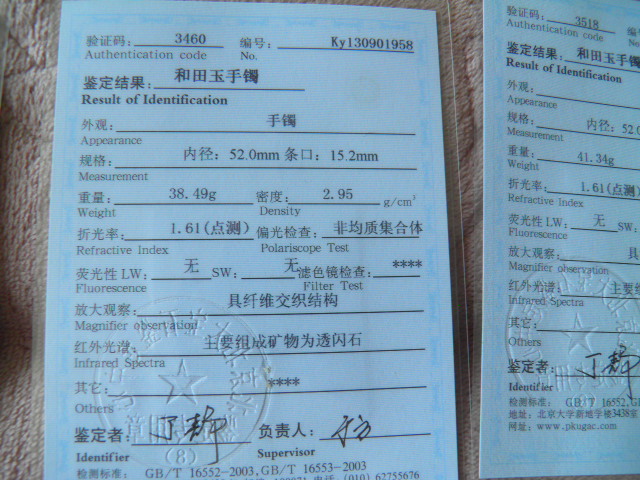 验证码: 3460 编号: Ky130901958
Authentication code No.
鉴定结果: 和田玉手镯
Result of Identification
外观: 手镯
Appearance
规格: 内径: 52.0mm 条口: 15.2mm
Measurement
重量: 38.49g 密度: 2.95 g/cm³
Weight Density
折光率: 1.61(点测) 偏光检查: 非均质集合体
Refractive Index Polariscope Test
荧光性 LW: 无 SW: 无 滤色镜检查: ****
Fluorescence Filter Test
放大观察: 具纤维交织结构
Magnifier observation
红外光谱: 主要组成矿物为透闪石
Infrared Spectra
其它: ****
Others
鉴定者: 丁静 负责人:
Identifier Supervisor
(8)
检测标准: GB/T 16552-2003, GB/T 16553-2003
电话: (010) 62755676
验证码: 3518 编号
Authentication code No.
鉴定结果: 和田玉手镯
Result of Identification
外观:
Appearance
规格: 内径: 52.0
Measurement
重量: 41.34g
Weight
折光率: 1.61(点测)
Refractive Index
荧光性 LW: 无 S
Fluorescence
放大观察: 具
Magnifier observation
红外光谱: 主要
Infrared Spectra
其它:
Others
鉴定者: 丁静
Identifier
检测标准: GB/T 16552
地址: 北京大学新地学楼3438室
网址: www.pkugac.com